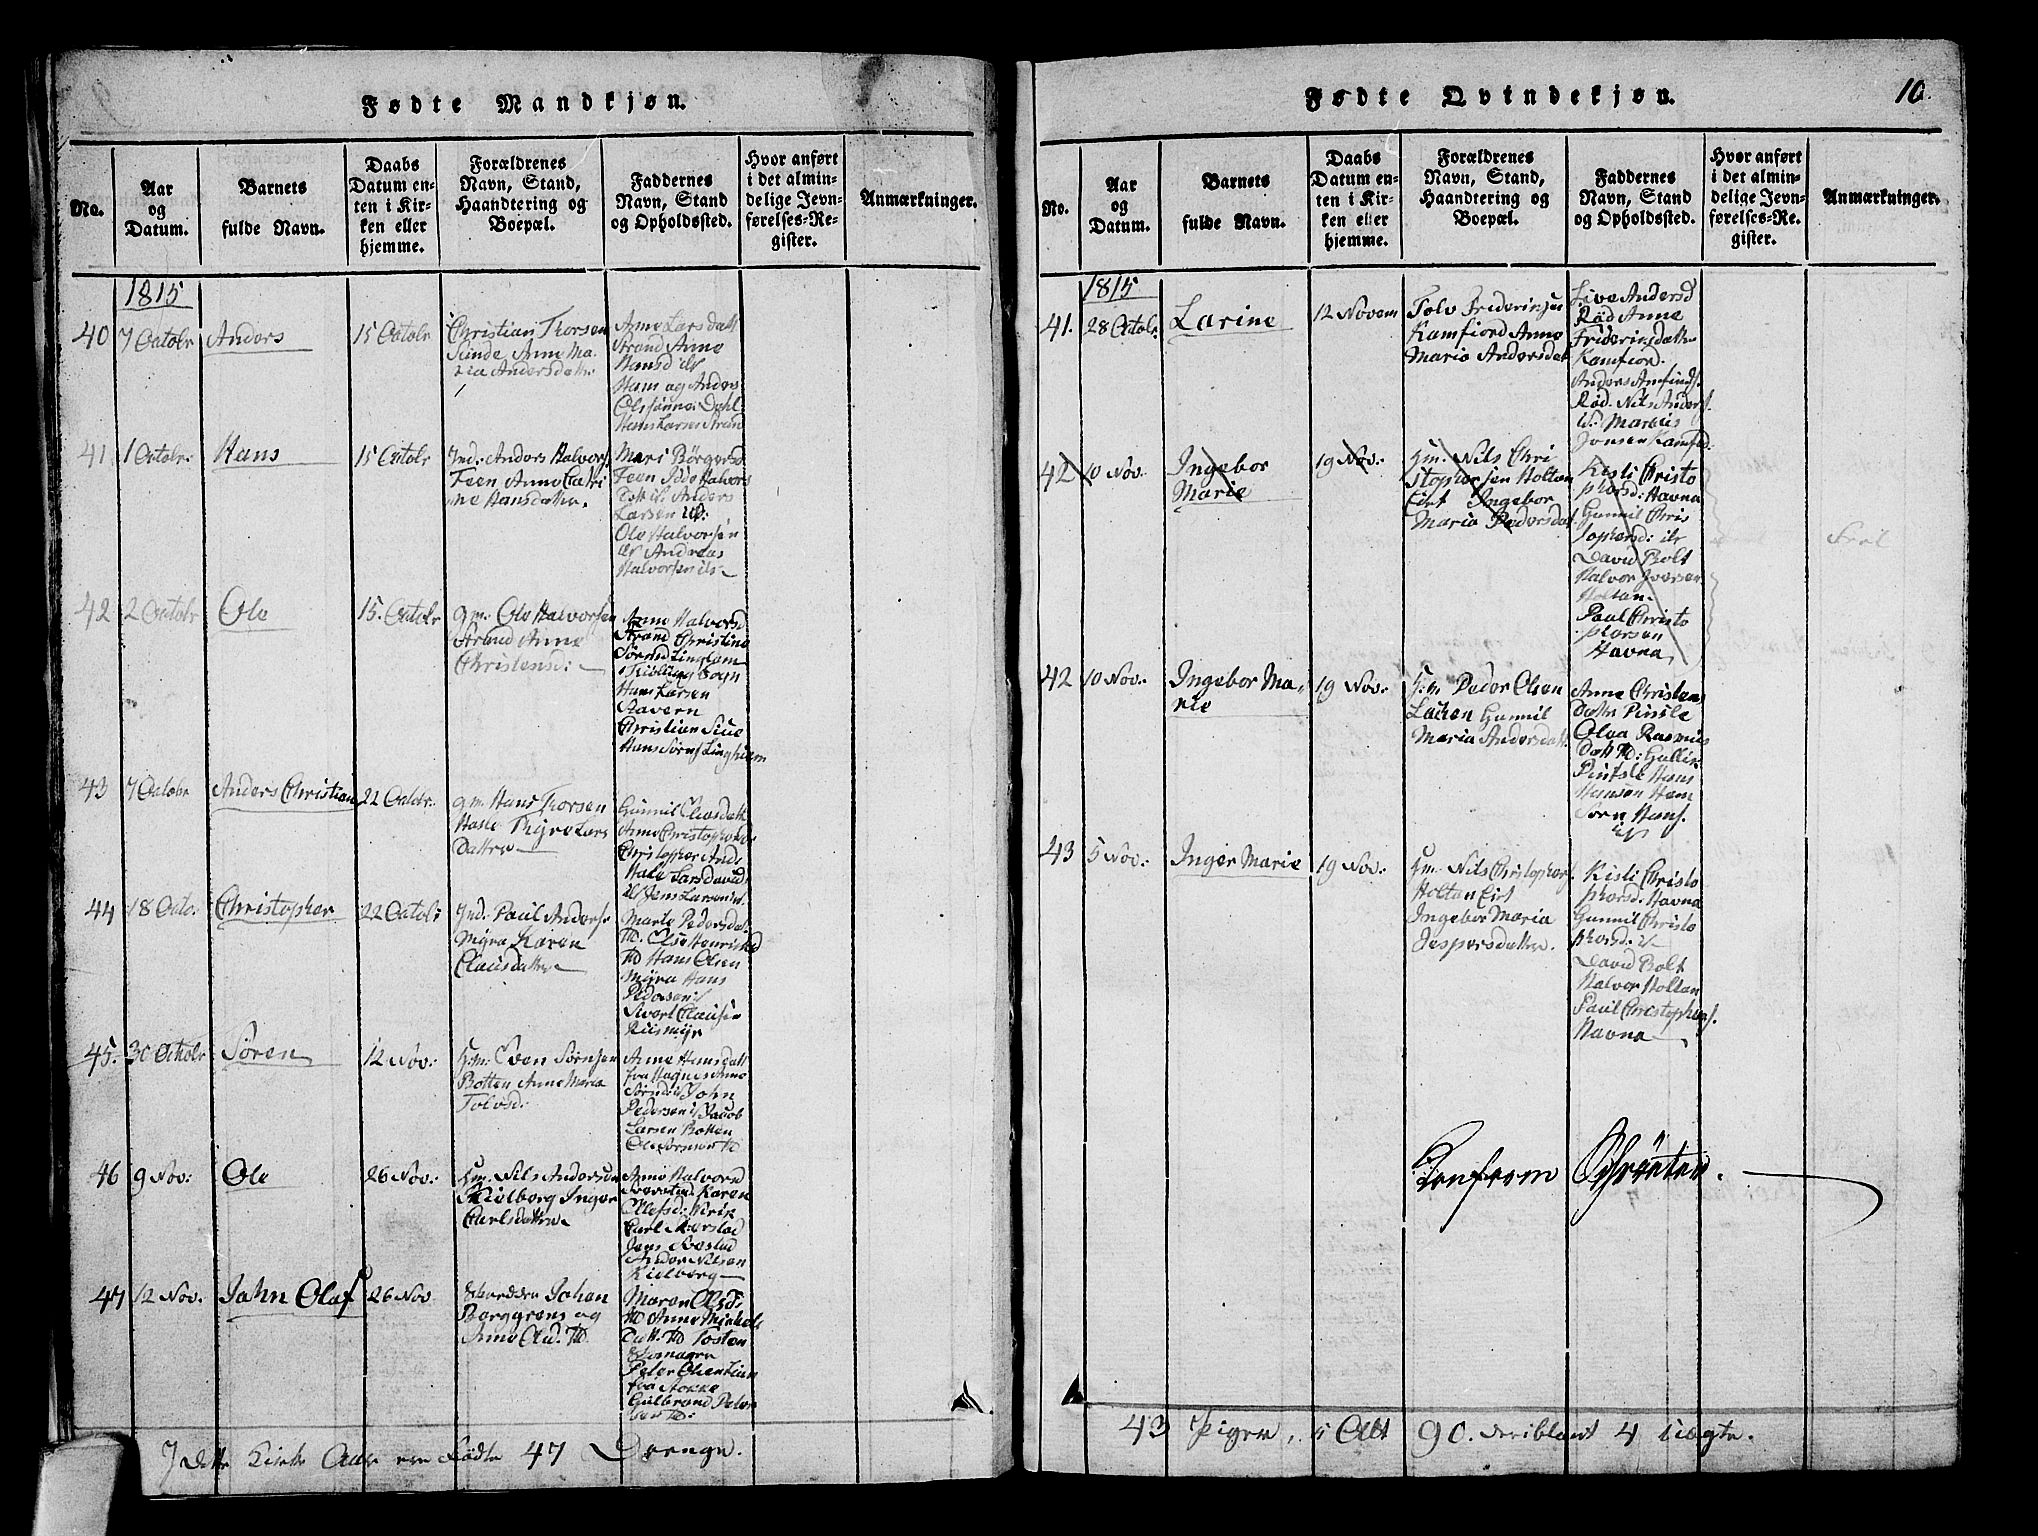 Fødte Mandkjøn.
No.
Aar
og
Datum.
Barnets
fulde Navn.
Daabs
Datum en-
ten i Kir-
ken eller
hjemme.
Forældrenes
Navn, Stand,
Haandtering og
Boepæl.
Faddernes
Navn, Stand
og Opholdssted.
Hvor anført
i det almin-
delige Jevn-
førelses-Re-
gister.
Anmærkninger.
1815
40
7 Octobr
Anders
15 Octobr
Christian Thorsen
Sunde Anne Ma-
ria Andersdattr
Anne Larsdatt
Strand Anne
Hansd
Hans og Anders
Olssønne Dahl
Hans Larsen Strand
41
1 Octobr.
Hans
15 Octobr
Ind: Anders Halvors
Feen Anne Cathri
ne Hansdatter.
Mari Børgersd
Feen Halvors
Datt Anders
Larsen
Ole Halvorsen
Andreas
Halvorsen
42
2 Octobr
Ole
15. Octobr
gm. Ole Halvorsen
Strand Anne
Christensd:
Anne Halvorsd
Strand Christine
Sørensd Lingium
Sogn
Hans Larsen
Stavern
Christian
Hans Sørens Linghiem
43
7 Octobr
Anders Christian
22 Octobr.
gm. Hans Thorsen
Hasle Thyre Lars
Datter
Gunnil Claesdatt
Anne Christophersd
Christopher Ands
Hasle Lars David
Jens Larsen
44
18 Octo.
Christopher
22 Octob:
Ind: Paul Anders
Myra Karen
Clausdatter
Marte Pedersdat.
Else Henriksd
Hans Olsen
Myra Hans
Pedersen
Sivert Clausen
45.
30 Octobr
Søren
12 Nov:
gm: Even Sørnsen
Botten Anne Maria
Tolvsd:
Anne Hansdatt
fra Anne
Sørensd John
Pedersen Jacob
Larsen Botten
46
9 Nov:
Ole
26 Nov:
gm. Nils Andersen
Kielberg Inger
Carlsdatter
Anne Halvord
Karen
Olefsd:
Carl
Jens
Andor Nilsen
Kielberg
47
12 Nov.
Jahn Olaf
26 Nov
Johan
Berggrens og
Anne
Maren Olsd:
Anne
Datt. Tosten
Peter
fra Stokke
Gulbrand Peder
I dette Kirke Aar ere Fødte 47 Drenge.
Fødte Qvindekjøn.
10.
No.
Aar
og
Datum.
Barnets
fulde Navn.
Daabs
Datum en-
ten i Kir-
ken eller
hjemme.
Forældrenes
Navn, Stand,
Haandtering og
Boepæl.
Faddernes
Navn, Stand
og Opholdssted.
Hvor anført
i det almin-
delige Jevn-
førelses-Re-
gister.
Anmærkninger.
1815
41.
28 Octobr.
Larine
12 Novem
Tolv Friderinsen
Kamfiord Anne
Maria Andersdat
Live Andersd
Rød Anne
Friderinsdattr
Kamfiord.
Anders Amfinds.
Rød. Nils Anders.
Markus
Jensen Kamfd:
42
10 Nov.
Ingebor
Marie
19 Nov:
gm. Nils Chri
stophersen Holtan
Eiet Ingebor
Maria Pedersdat
Kisti Christo
phersd: Havna
Gunnil Chris
tophersd:
David Bolt
Halvor Iversen
Holtan
Paul Christo
phersen
Havna
42
10 Nov:
Ingebor Ma-
rie
19 Nov:
gm Peder Olsen
Lachen Gunnil
Maria Andersdatt
Anne Christens
Datter Pinsle
Olea Rasmus
Datt Gullik
Pintsle Hans
Hansen Hem
Sørn Hans.
43
5 Nov:
Inger Marie
19 Nov:
gm. Nils Christophers.
Holtan Eiet
Ingebor Maria
Jespersdatter.
Kisti Christo
phersd: Havna
Gunnil Christo
phersd:
David Bolt
Halvor Holtan
Paul Christophers.
Havna
43 Piger, i Alt 90. deriblant 4 uægte.